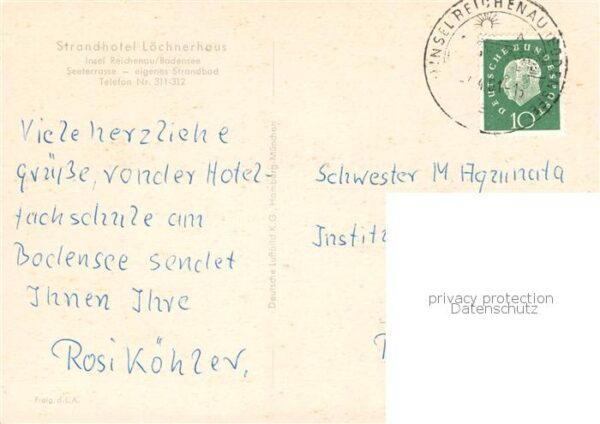 Strandhotel Löchnerhaus
Insel Reichenau/Bodensee
Seeterrasse – eigenes Strandbad
Telefon Nr. 311-312
Viele herzliche
Grüße, von der Hotel-
fachschule am
Bodensee sendet
Ihnen Ihre
Rosi Köhler.
Freig. d. L.A.
Deutsche Luftbild K.G., Hamburg-München
INSEL REICHENAU
DEUTSCHE BUNDESPOST
10
Schwester M.
Institu
privacy protection
Datenschutz